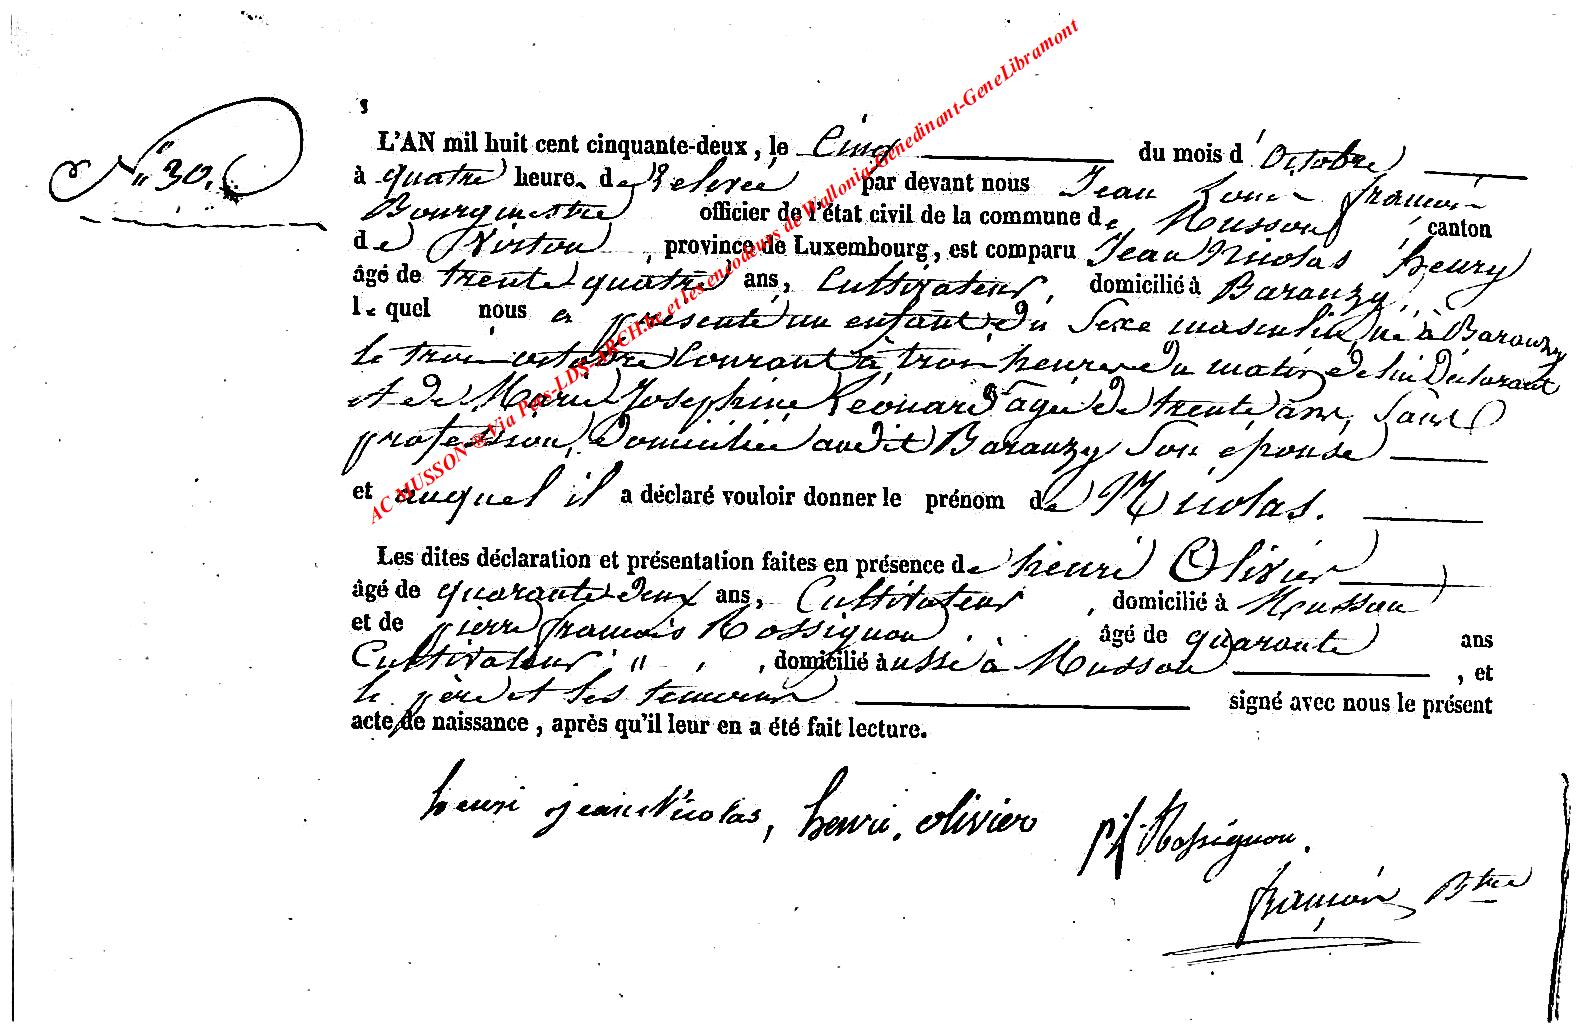 N° 30.
L'AN mil huit cent cinquante-deux, le Cinq du mois d'Octobre
à quatre heure. de Relevée par devant nous Jean Louis françois
Bourgmestre officier de l'état civil de la commune de Musson, canton
de Virton, province de Luxembourg, est comparu Jean Nicolas henry
âgé de trente quatre ans, Cultivateur, domicilié à Baranzy,
lequel nous a présenté un enfant du Sexe masculin, né à Baranzy
le trois octobre Courant à trois heures du matin, de lui Déclarant
et de Marie Josephine Léonard agée de trente ans, Sans
profession, Domiciliée audit Baranzy Son épouse
et auquel il a déclaré vouloir donner le prénom de Nicolas.
Les dites déclaration et présentation faites en présence de henri Olivier
âgé de quarante deux ans, Cultivateur, domicilié à Musson
et de pierre françois Rossignon. âgé de quarante ans
Cultivateur " , domicilié aussi à Musson , et
le père et les temoins signé avec nous le présent
acte de naissance, après qu'il leur en a été fait lecture.
henri jean Nicolas, henri. olivier p.f. Rossignon.
françois Btre
AC MUSSON @ Via Pas-LDS-ARCH.be et les encodeurs de Wallonia-Genedinant-GeneLibramont